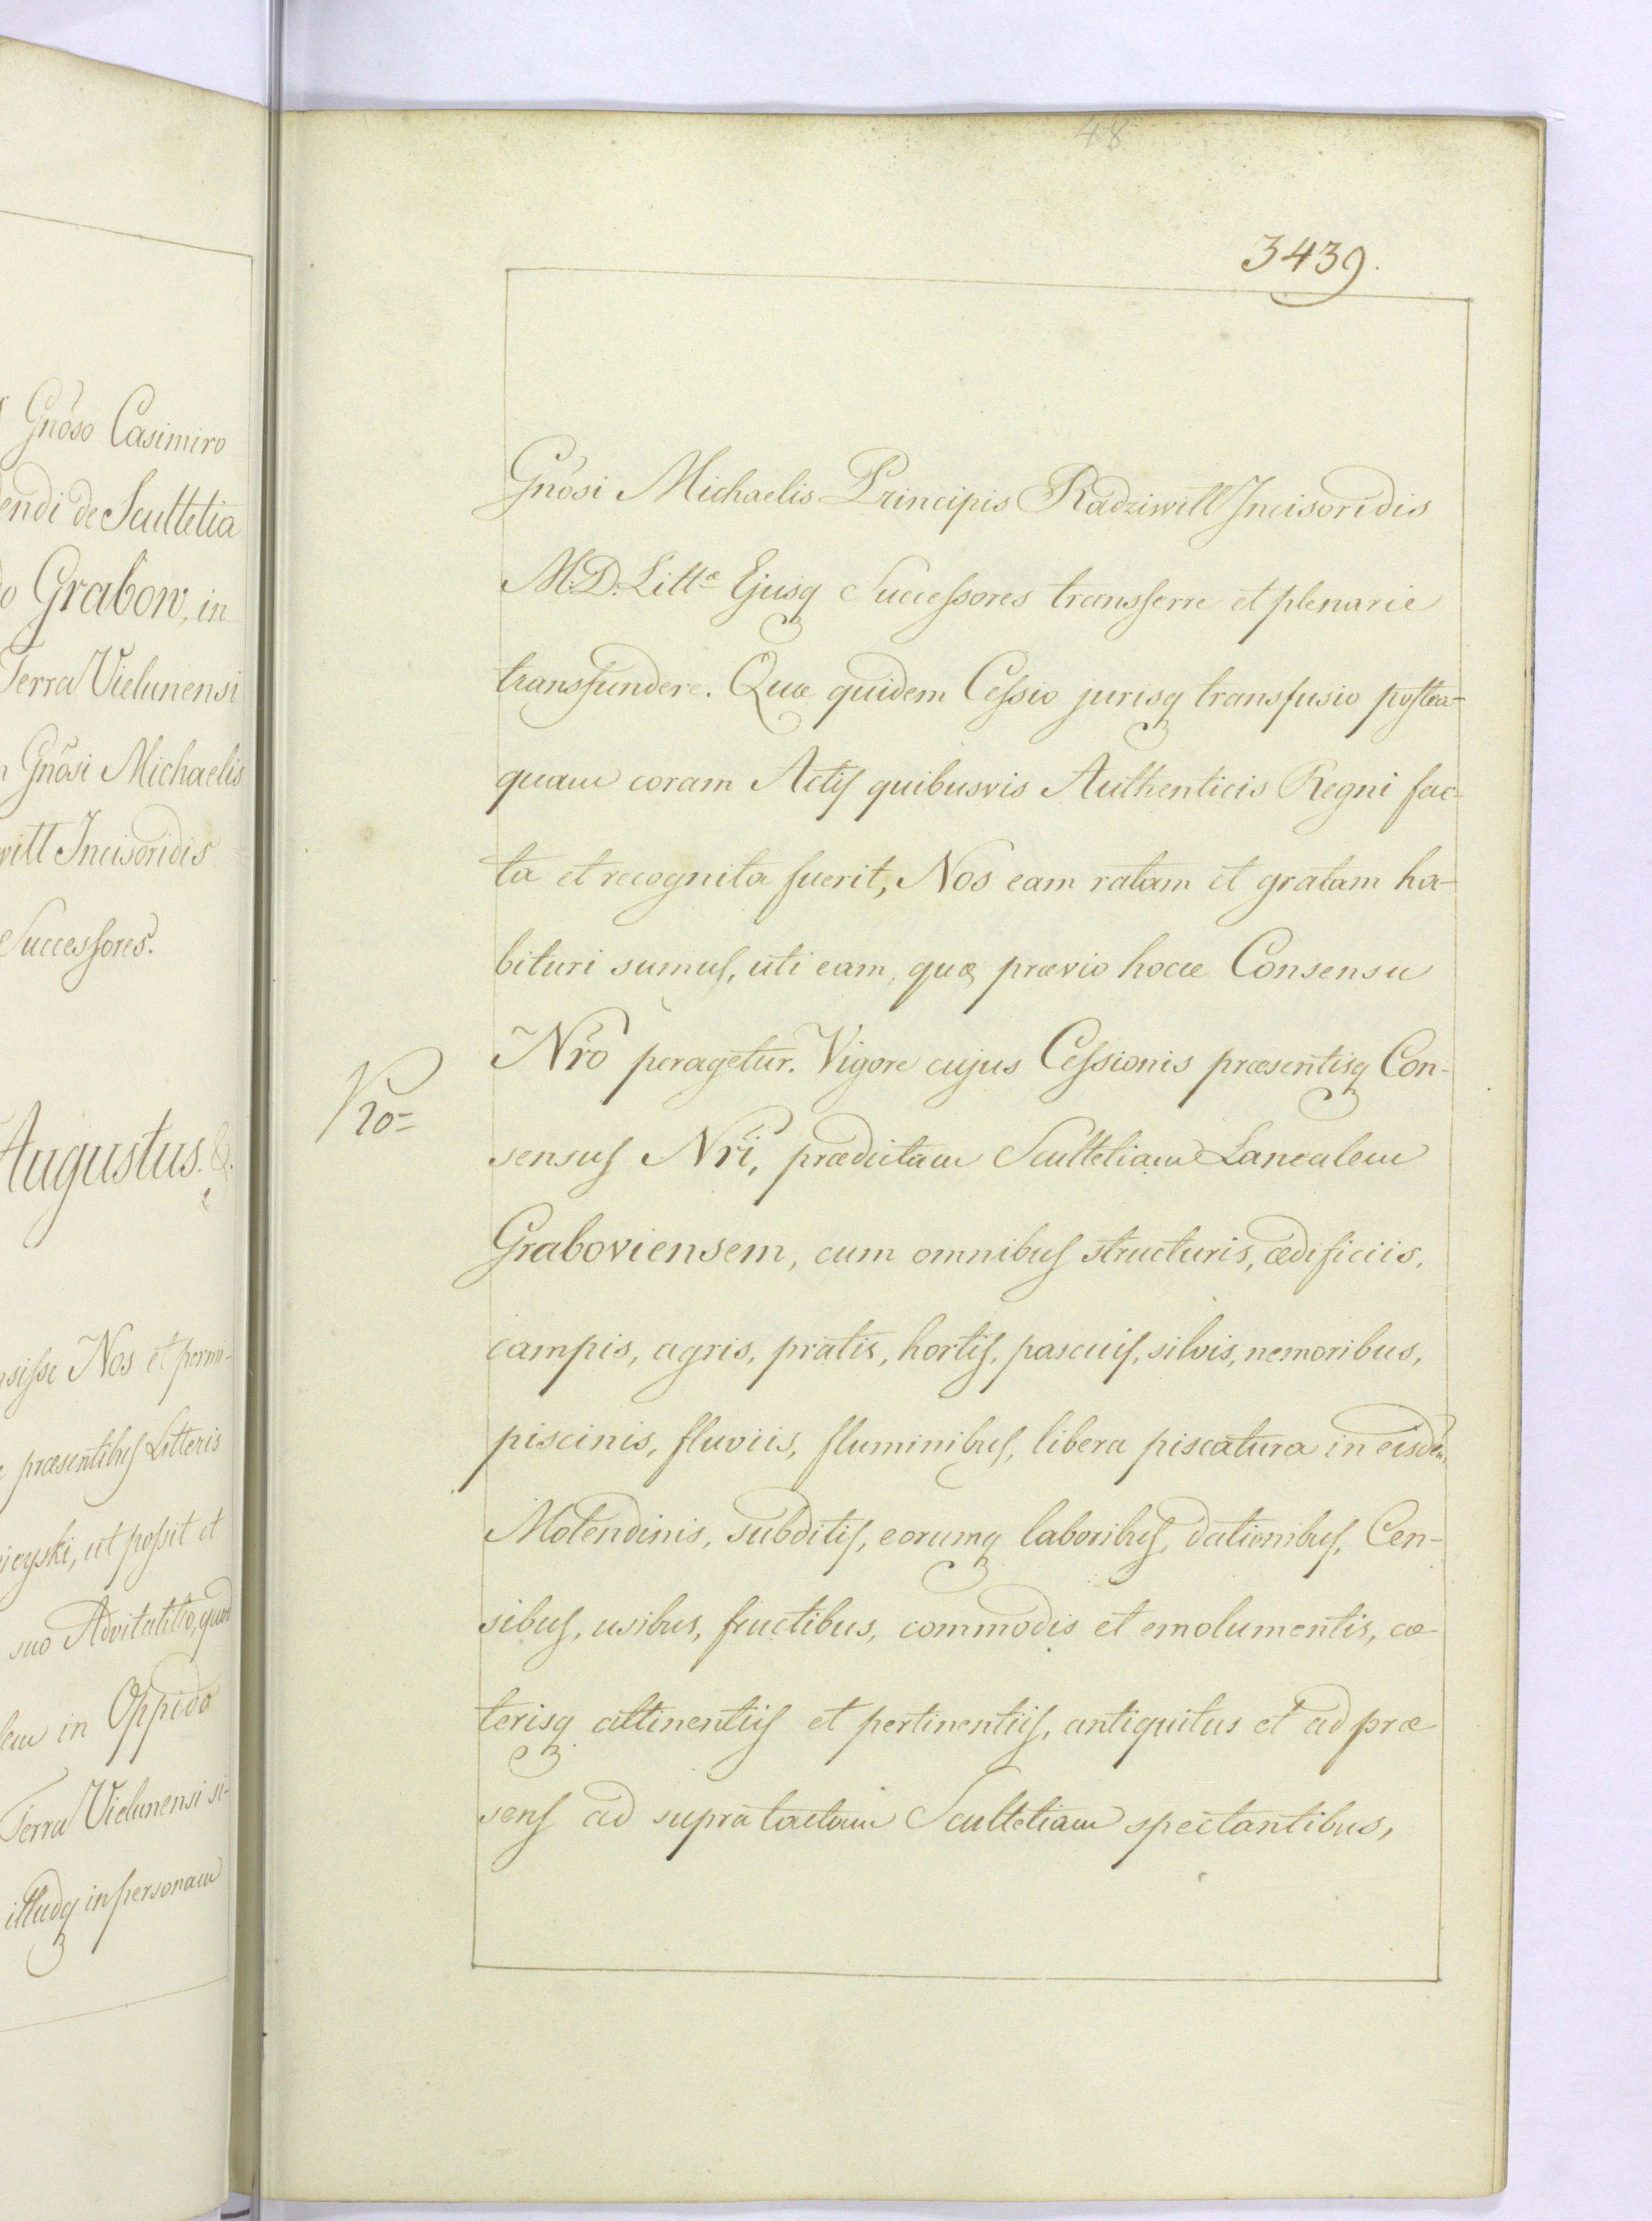 Gnõso Casimiro
endi de Scultetia
Grabow, in
Terra Vielunensi
Gnõsi Michaelis
will Incisoridis
Successores.
Augustus. &.
sisse Nos et permi-
præsentibus Litteris
ut possit et
suo Advitalitio, quod
in Oppido
Terra Vielunensi si-
illudq in personam
48
3439.
Gnõsi Michaelis Principis Radziwill Incisoridis
M.D. Littæ Ejusq Successores transferre et plenarie
transfundere. Quæ quidem Cessio jurisq transfusio postea-
quam coram Actis quibusvis Authenticis Regni fac-
ta et recognita fuerit, Nos eam ratam et gratam ha-
bituri sumus, uti eam, quæ prævio hocce Consensu
Nrõ peragetur. Vigore cujus Cessionis præsentisq Con-
sensus Nrĩ, prædictam Scultetiam Lanealem
Graboviensem, cum omnibus structuris, ædificiis,
campis, agris, pratis, hortis, pascuis, silvis, nemoribus,
piscinis, fluviis, fluminibus, libera piscatura in eisdẽ,
Molendinis, subditis, eorumq laboribus, dationibus, Cen-
sibus, usibus, fructibus, commodis et emolumentis, cæ
terisq attinentiis et pertinentiis, antiquitus et ad præ
sens ad supra tactam Scultetiam spectantibus,